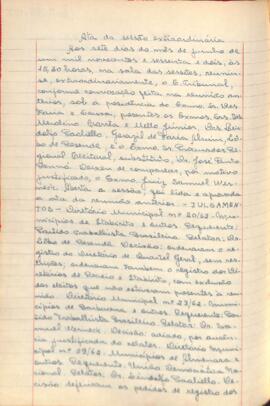 Ata da sessão extraordinária
Aos sete dias do mês de junho de
um mil novecentos e sessenta e dois, às
horas, na sala das sessões, reuniu-
se, extraordinariamente, o E. Tribunal,
conforme convocação feita na reunião an-
terior, sob a presidência do Exmo. Sr. Des.
Faria e Sousa, presentes os Exmos. Srs. Des.
Costa e Mello Júnior, Drs. Lin-
dolfo Paoliello,
de Resende, e o Exmo. Sr. Procurador Re-
gional Eleitoral, substituto, Dr. José Pinto
Deixou de comparecer, por motivo
justificado, o Exmo. Juiz Samuel Wer-
neck. Aberta a sessão, foi lida e aprovada
a ata da reunião anterior. - JULGAMEN-
TOS - Diretório Municipal nº 20/62. Mu-
nicípios de e outros. Requerente:
Partido Trabalhista Brasileiro. Relator: Dr.
de Resende. Decisão: ordenaram o
registro do Diretório de Quartel Geral, sem res-
trições; ordenaram também o registro dos Di-
retórios de e com exclusão
dos eleitos que não estavam presentes à reu-
nião. Diretório Municipal nº 23/62. Mu-
nicípios de e outros. Requerente: Par-
tido Trabalhista Brasileiro. Relator: Dr. Sa-
muel Werneck. Decisão: adiado, por ausên-
cia justificada do relator. Diretório Munici-
pal nº 29/62. Municípios de e
outros. Requerente: União Democrática Na-
cional. Relator: Dr. Lindolfo Paoliello. De-
cisão: deferiram os pedidos de registro dos